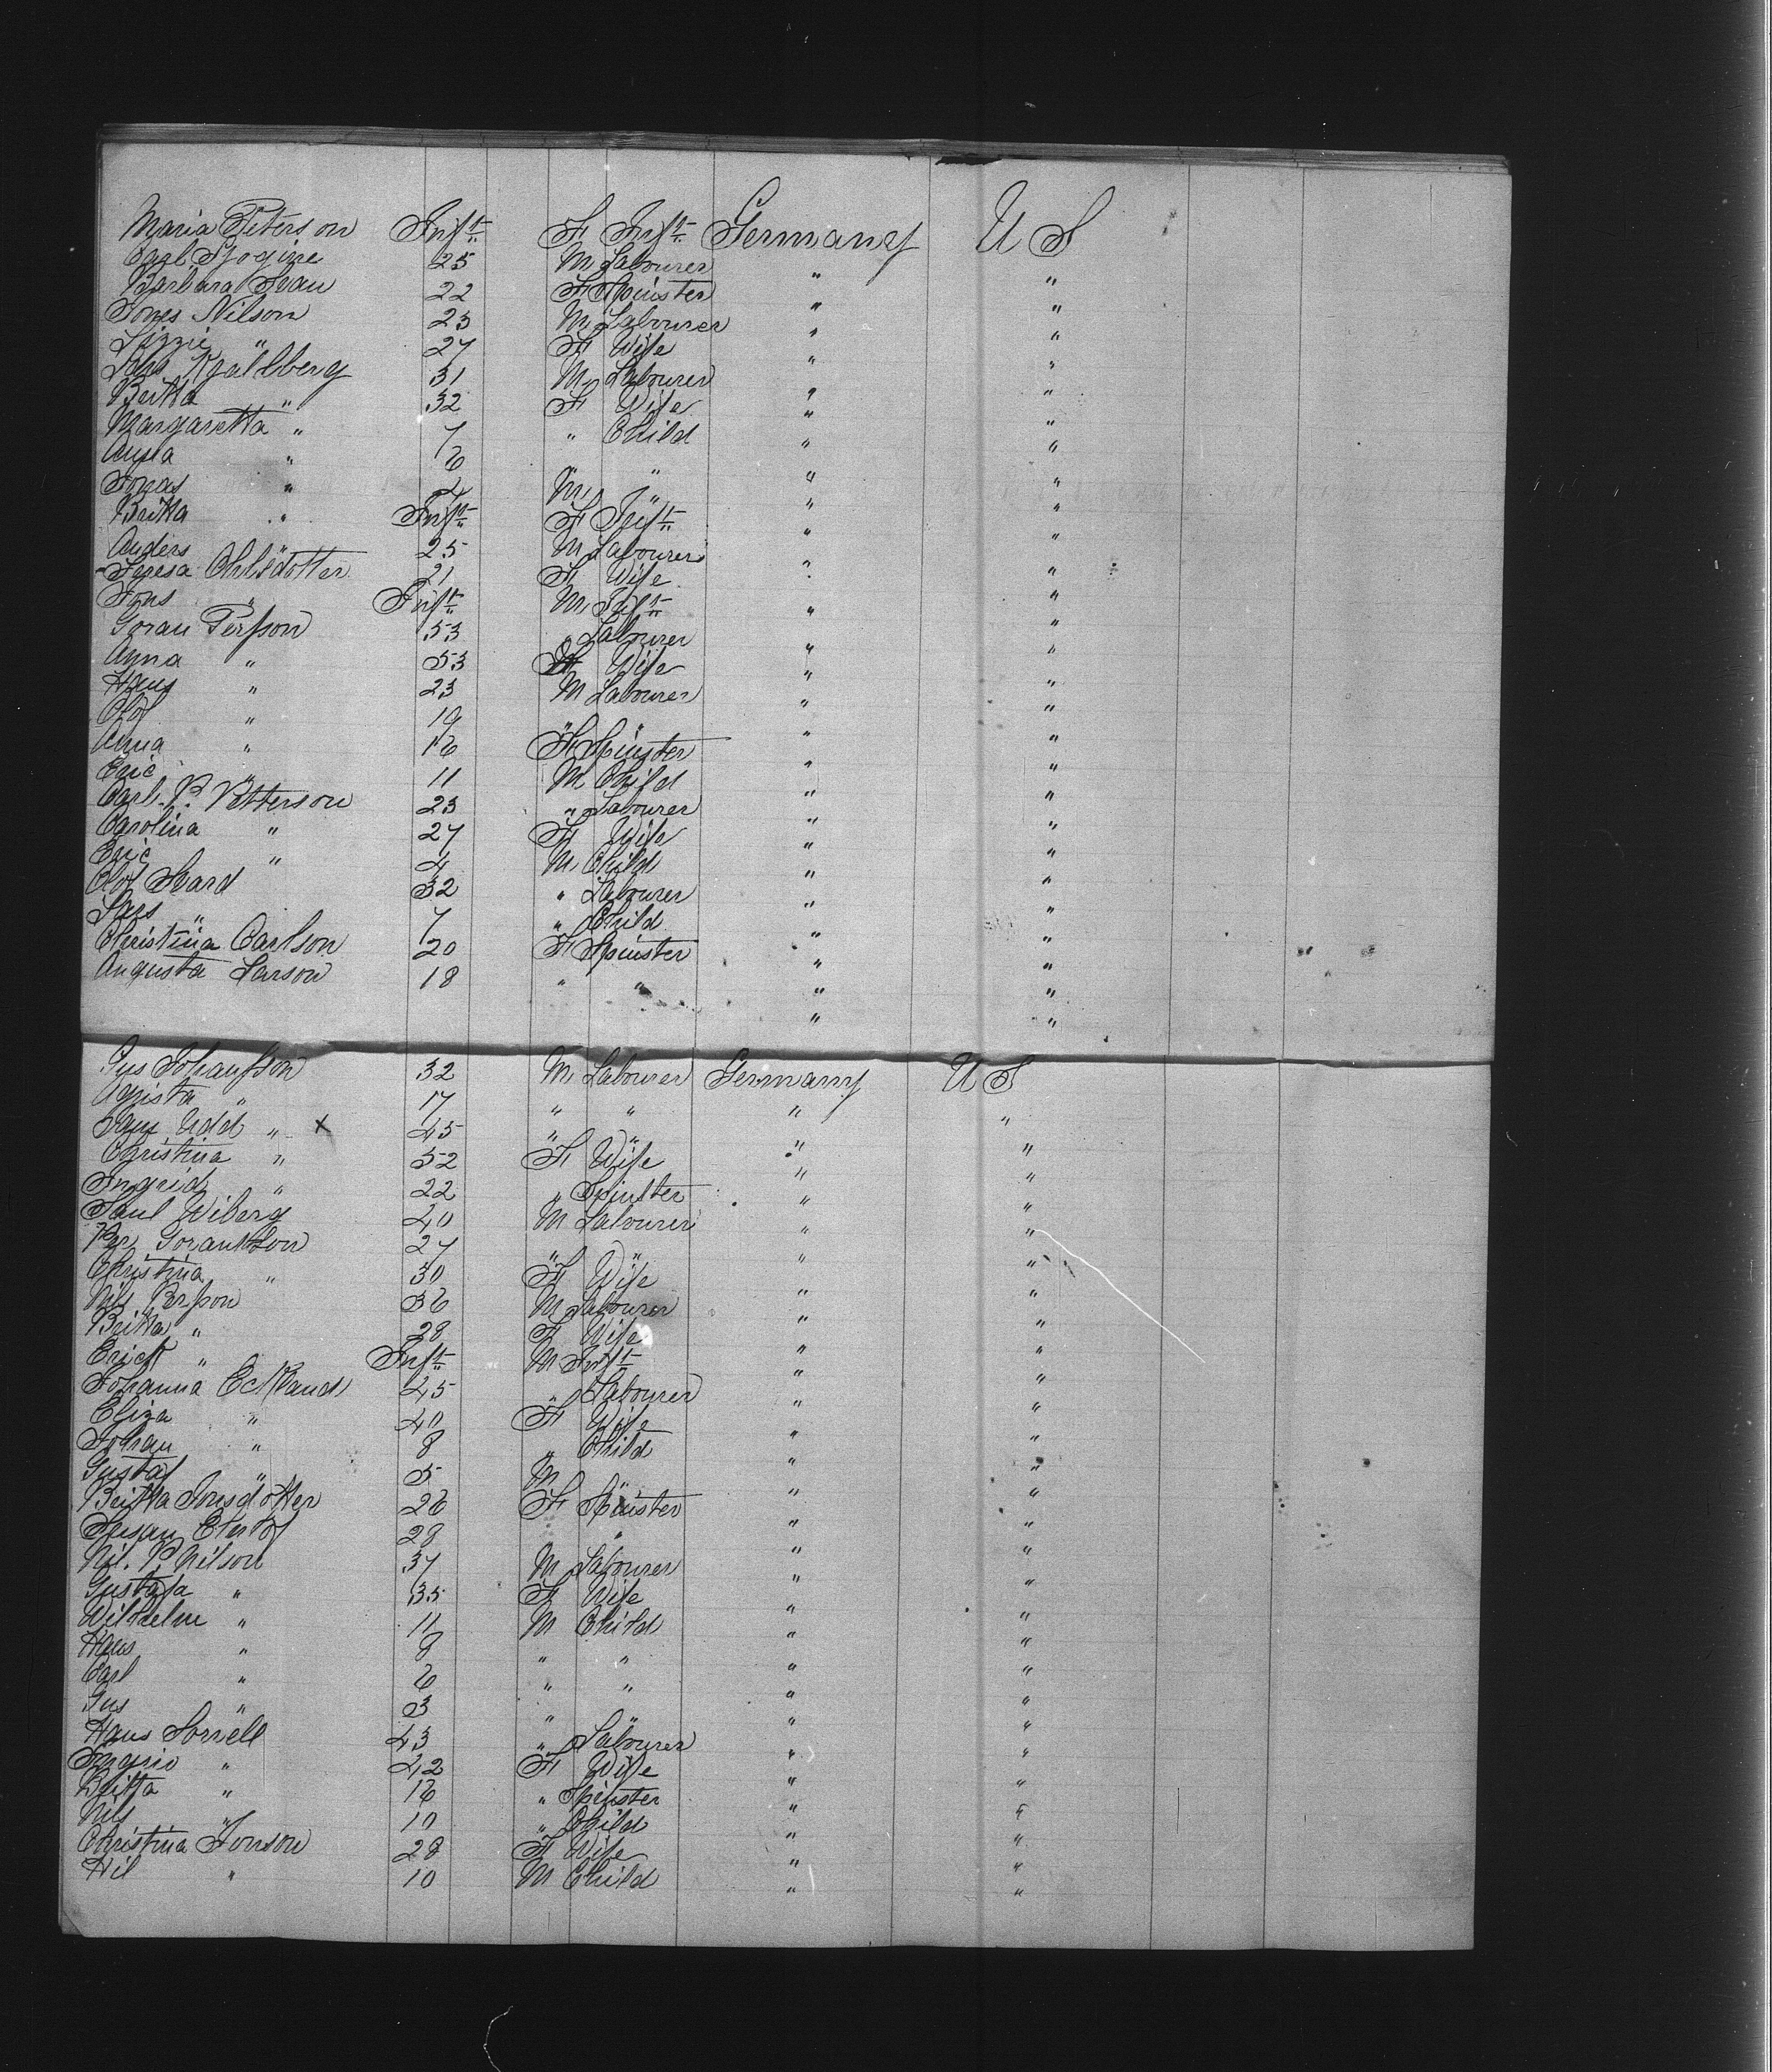 Maria Peterson Inft. F Inft. Germany U S
Carl Sjogine 25 M Labourer " "
Barbara Svan 22 F Spinster " "
Jones Nilson 23 M Labourer " "
Lizzie " 27 F Wife " "
Lars Kjallberg 31 M Labourer " "
Britta " 32 F Wife " "
Margaretta " 7 " Child " "
Anna " 6 " " " "
Jonas " 4 M " " "
Britta " Inft. F Inft. " "
Anders " 25 M Labourer " "
Teresa Ohlsdotter 21 F Wife " "
Jons " Inft. M Inft. " "
Goran Persson 53 " Labourer " "
Anna " 53 F Wife " "
Hans " 23 M Labourer " "
Olof " 19 " " " "
Anna " 16 F Spinster " "
Eric " 11 M Child " "
Carl. P. Petterson 23 " Labourer " "
Carolina " 27 F Wife " "
Eric " 4 M Child " "
Olof Svard 32 " Labourer " "
Lars " 7 " Child " "
Christina Carlson 20 F Spinster " "
Augusta Larson 18 " " " "
Gus Johansson 32 M Labourer Germany U S
Agrista " 17 " " " "
Udd " x 45 " " " "
Christina " 52 F Wife " "
Ingrid " 22 " Spinster " "
Paul Wiberg 40 M Labourer " "
Per Goransson 27 " " " "
Christina " 30 F Wife " "
Nils Persson 36 M Labourer " "
Britta " 28 F Wife " "
Erick " Inft. M Inft. " "
Johanna Ecklund 45 " Labourer " "
Eliza " 40 F Wife " "
Johan " 8 " Child " "
Gustaf " 5 M " " "
Britta Jonsdotter 26 F Spinster " "
Susan 28 " " "
Nil. P. Nilson 37 M Labourer " "
Gustafa " 35 F Wife " "
Wilhelm " 11 M Child " "
Hans " 8 " " " "
Carl " 6 " " " "
Gus " 3 " " " "
Hans Sorrell 43 " Labourer " "
Ingrio " 42 F Wife " "
Britta " 16 " Spinster " "
Nils " 10 " Child " "
Christina Jonson 28 F Wife " "
Nil " 10 M Child " "